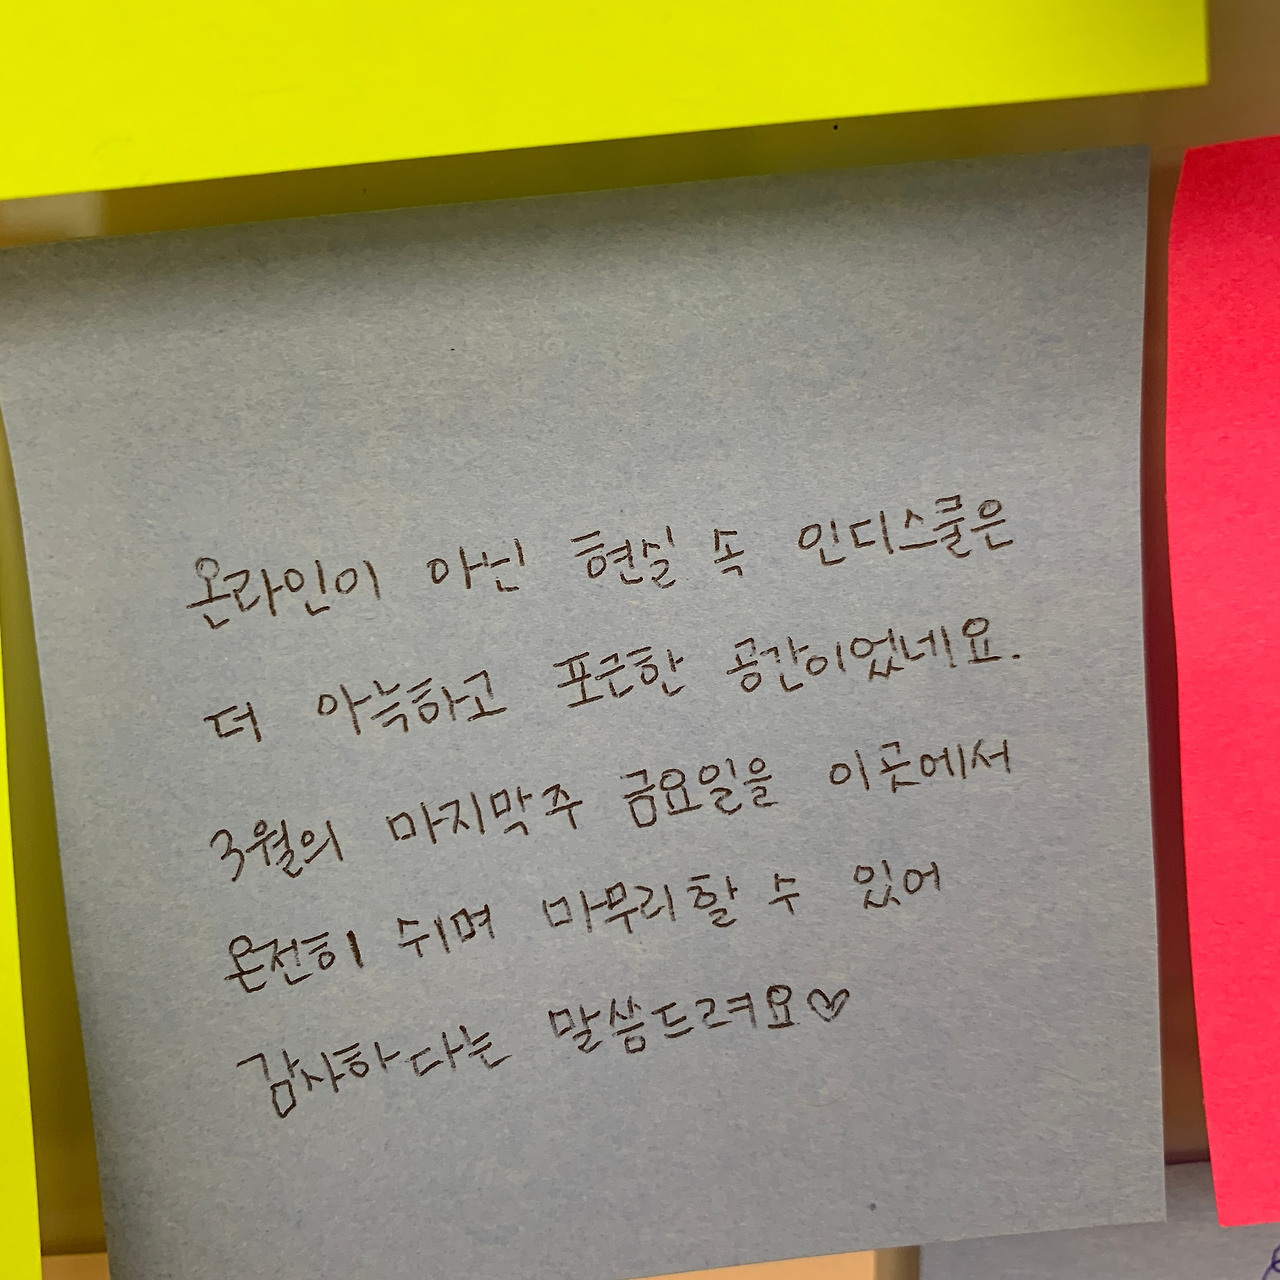 온라인이 아닌 현실 속 인디스쿨은
더 아늑하고 포근한 공간이었네요.
3월의 마지막주 금요일을 이곳에서
온전히 쉬며 마무리할 수 있어
감사하다는 말씀드려요♡